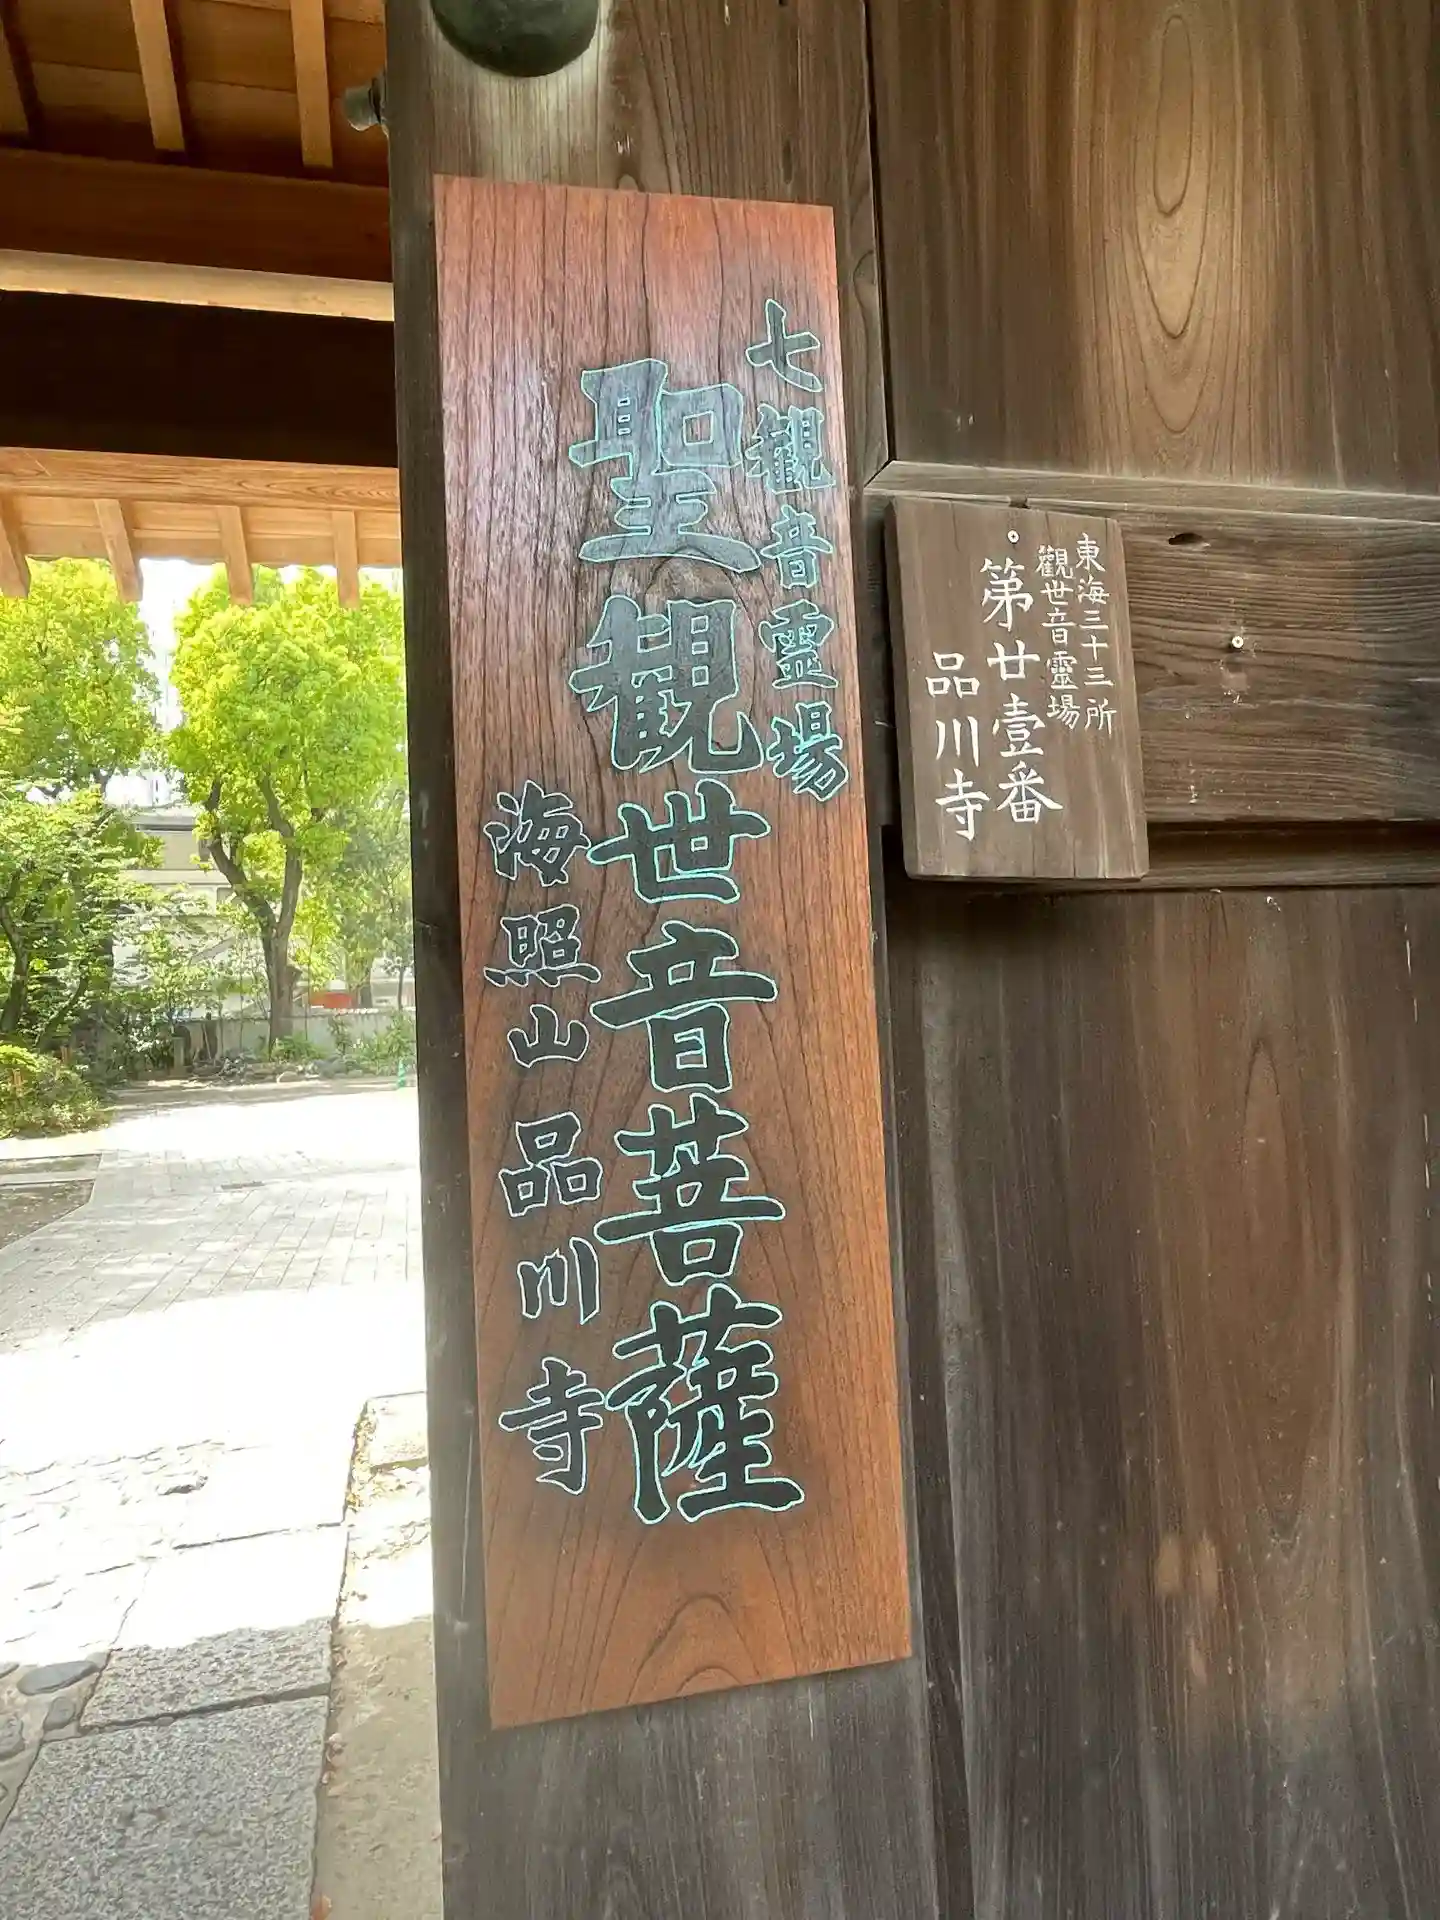 七観音霊場
聖観世音菩薩
海照山品川寺
東海三十三所
觀世音靈場
第廿壹番
品川寺